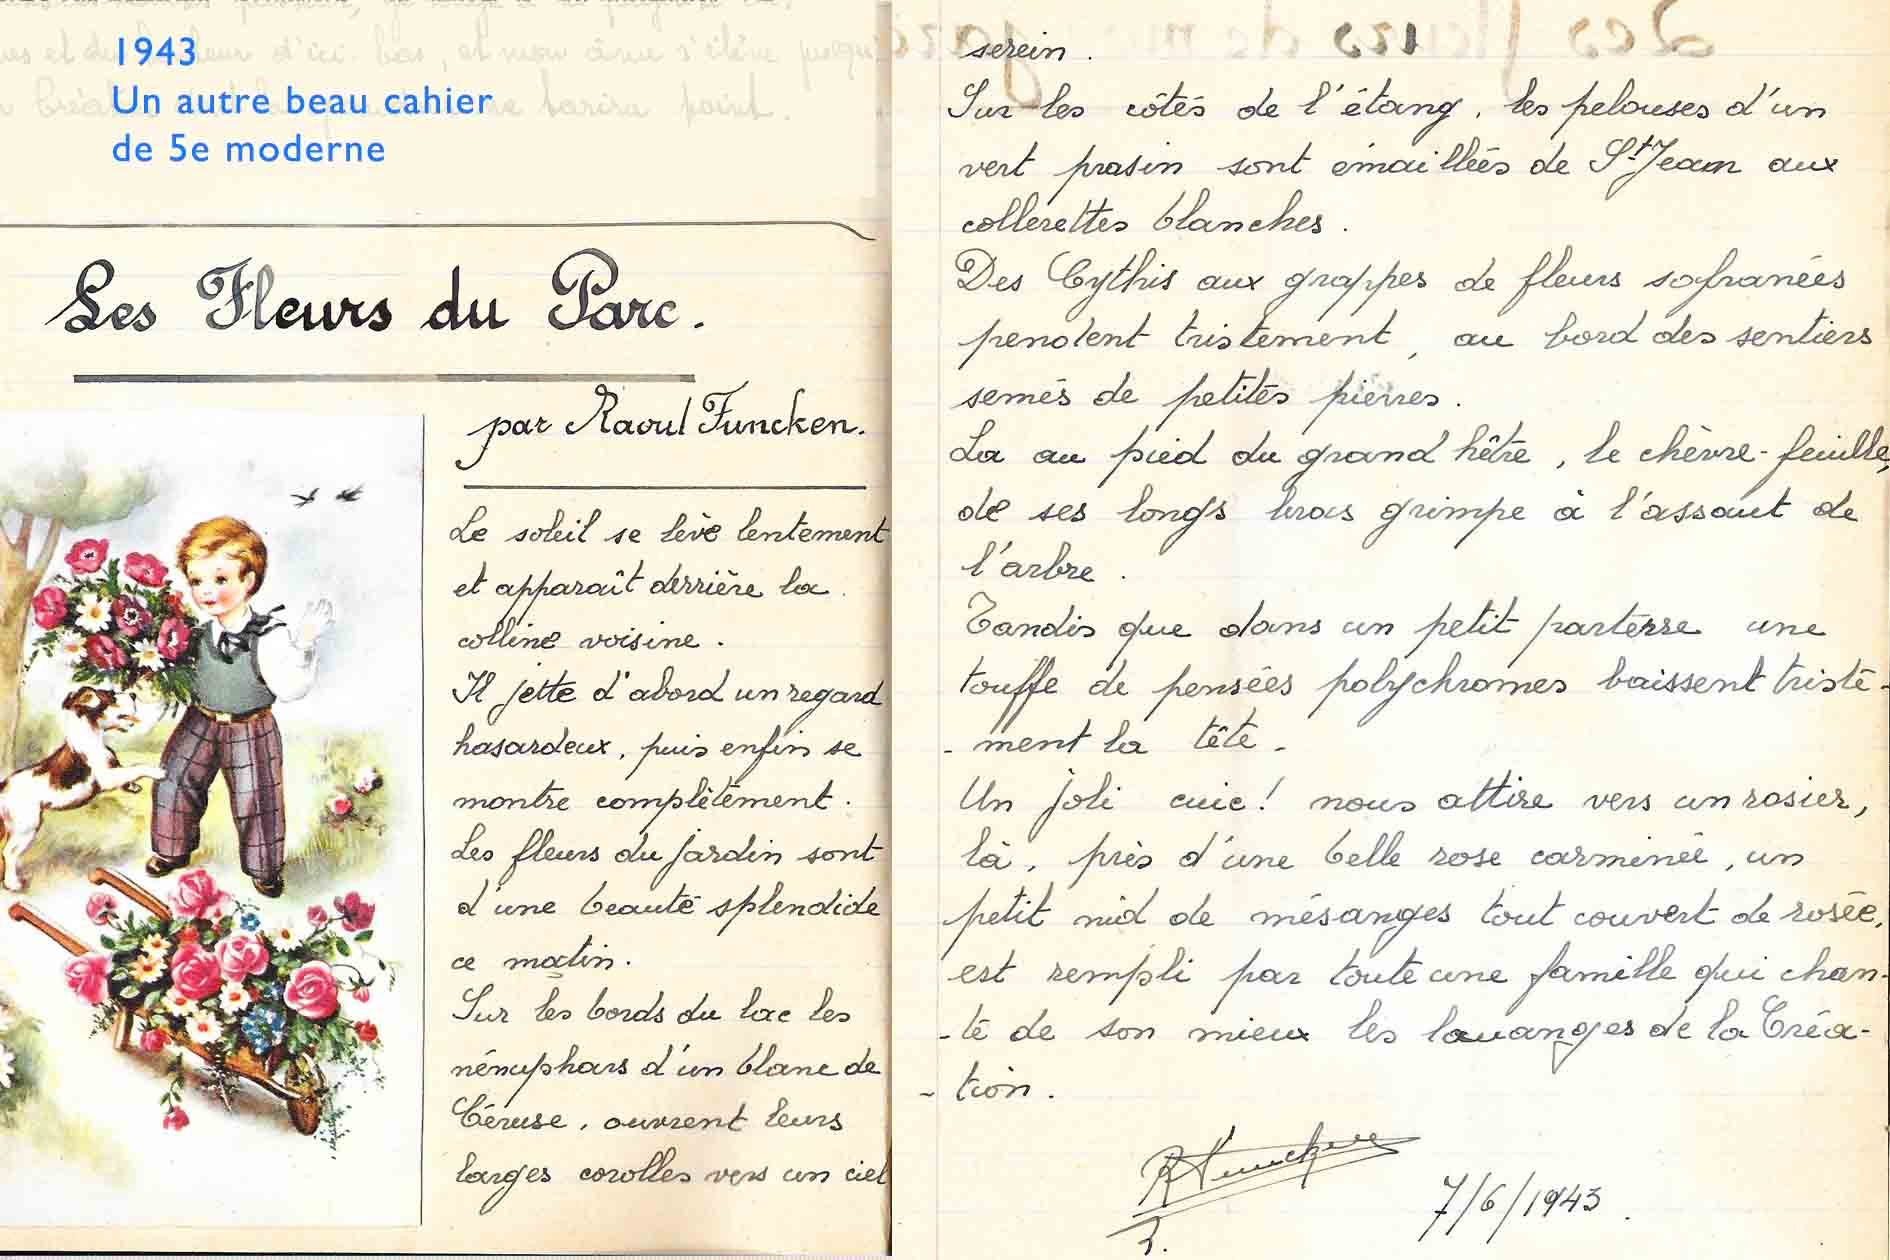 1943
Un autre beau cahier
de 5e moderne
Les Fleurs du Parc.
par Raoul Funcken.
Le soleil se lève lentement
et apparaît derrière la
colline voisine.
Il jette d'abord un regard
hasardeux, puis enfin se
montre complètement.
Les fleurs du jardin sont
d'une beauté splendide
ce matin.
Sur les bords du lac les
nénuphars d'un blanc de
Céruse, ouvrent leurs
larges corolles vers un ciel
serein.
Sur les côtés de l'étang, les pelouses d'un
vert prasin sont émaillées de St Jean aux
collerettes blanches.
Des Cythis aux grappes de fleurs safranées
pendent tristement, au bord des sentiers
semés de petites pierres.
La au pied du grand hêtre, le chèvre-feuille,
de ses longs bras grimpe à l'assaut de
l'arbre.
Tandis que dans un petit parterre une
touffe de pensées polychromes baissent triste-
-ment la tête.
Un joli cuic! nous attire vers un rosier,
là, près d'une belle rose carminée, un
petit nid de mésanges tout couvert de rosée,
est rempli par toute une famille qui chan-
-te de son mieux les louanges de la Créa-
-tion.
RFuncken
7/6/1943.